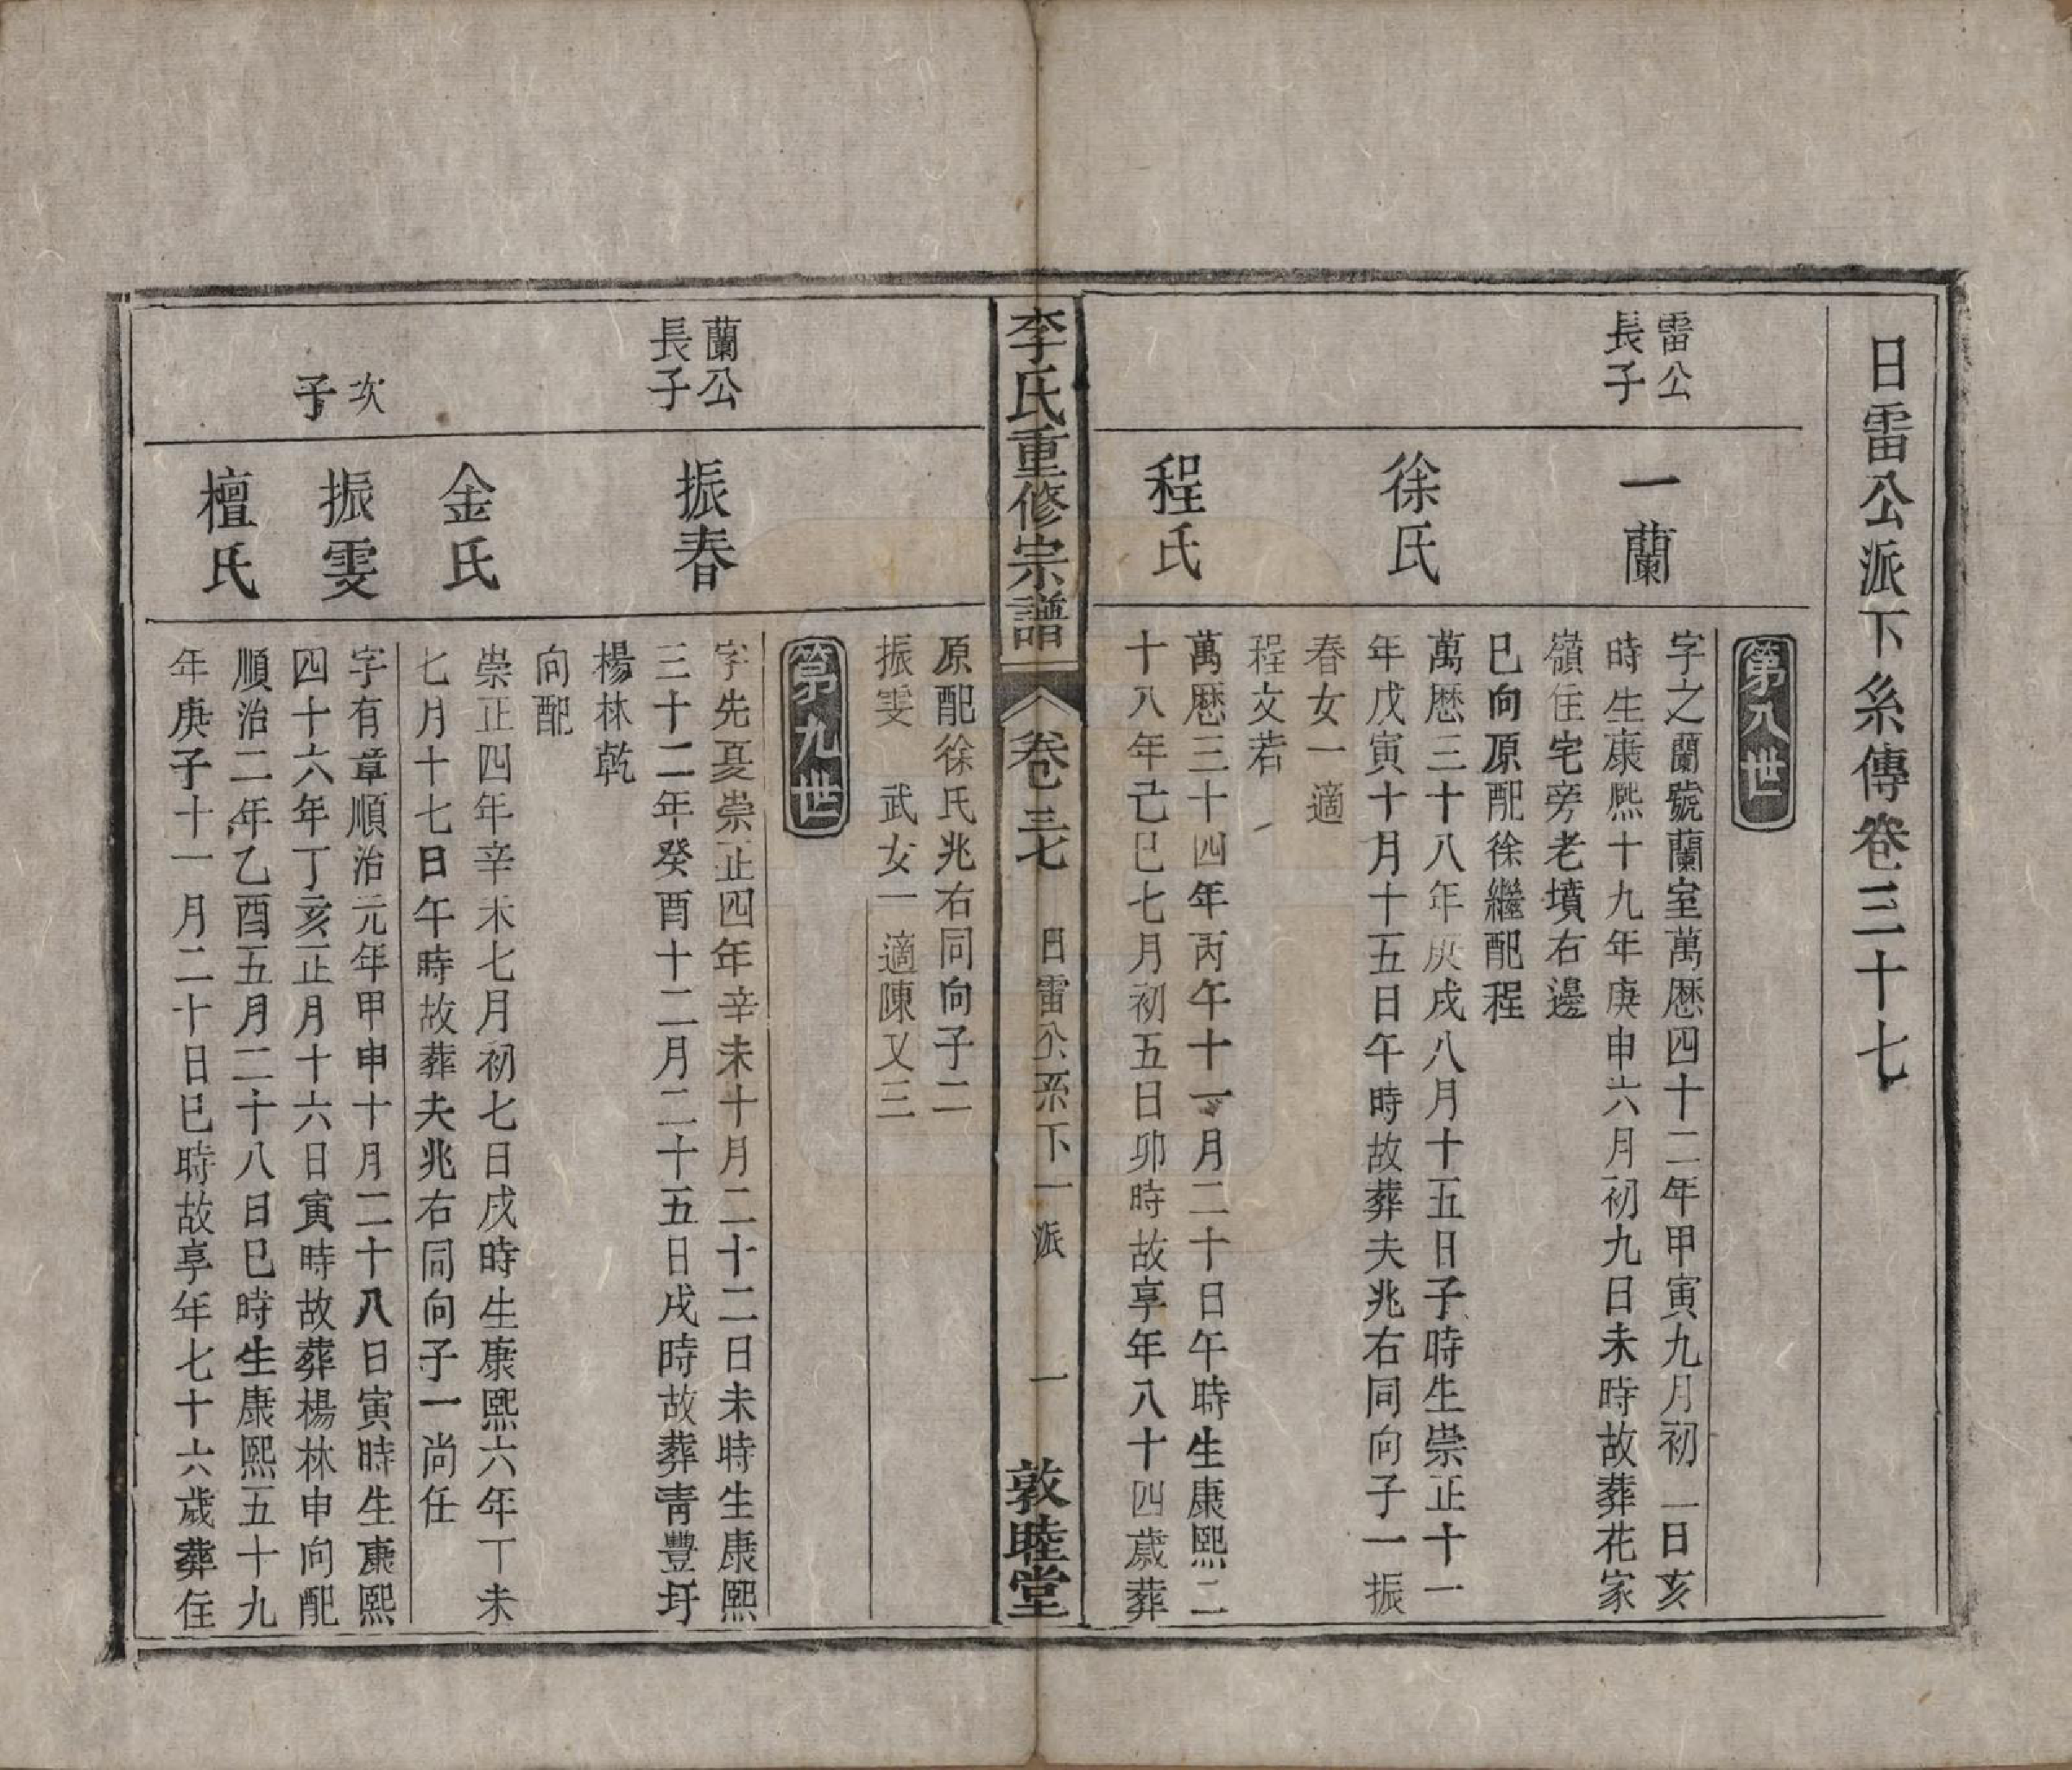 日雷公派下糸傳卷三十七
第八世
雷公
長子
一蘭
字之蘭號蘭室萬歷四十二年甲寅九月初一日亥
時生康熙十九年庚申六月初九日未時故葬花家
嶺住宅旁老墳右邊
巳向原配徐繼配程
徐氏
萬歷三十八年庚戌八月十五日子時生崇正十一
年戊寅十月十五日午時故葬夫兆右同向子一振
春女一適
程文若
程氏
萬歷三十四年丙午十一月二十日午時生康熙二
十八年己巳七月初五日卯時故享年八十四歲葬
李氏重修宗譜
卷三七
日雷公系下一派
一
敦睦堂
原配徐氏兆右同向子二
振雯 武女一適陳又三
第九世
蘭公
長子
振春
字先憂崇正四年辛未十月二十二日未時生康熙
三十二年癸酉十二月二十五日戌時故葬青豐圩
楊林乾
向配
金氏
崇正四年辛未七月初七日戌時生康熙六年丁未
七月十七日午時故葬夫兆右同向子一尚任
次
子
振雯
字有章順治元年甲申十月二十八日寅時生康熙
四十六年丁亥正月十六日寅時故葬楊林申向配
檀氏
順治二年乙酉五月二十八日巳時生康熙五十九
年庚子十一月二十日巳時故享年七十六歲葬住